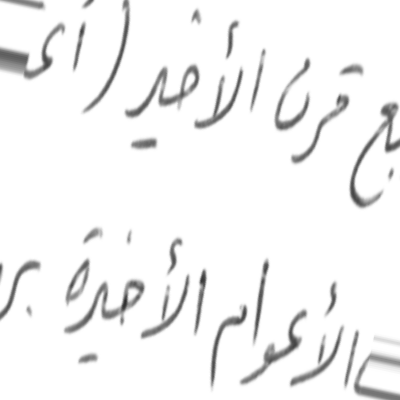 بع قرن الأخير (أى
الأعوام الأخيرة